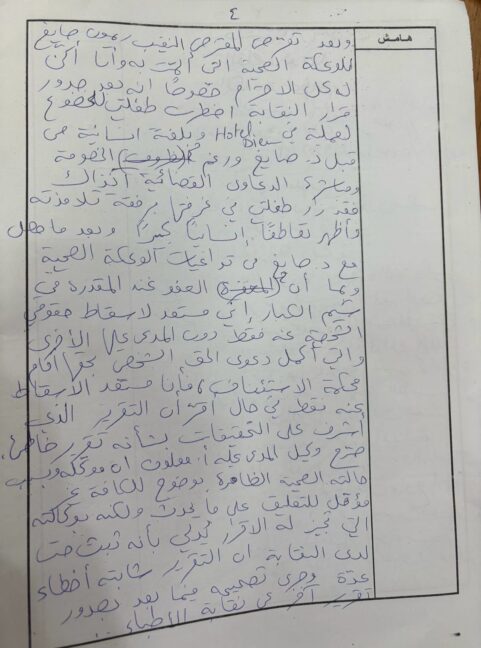 ٤
هامش
وبعد تعرض المعترض النقيب ريمون صايغ
للوعكة الصحية التي ألمت به وأنا أكن
له كل الاحترام خصوصًا انه بعد صدور
قرار النقابة اضطرت طفلتي للخضوع
لعملية في Hotel Dieu وبلفتة انسانية من
قبل د. صايغ ورغم الخصومة
الدعاوى القضائية آنذاك
فقد زار طفلتي في غرفتها برفقة تلامذته
وأظهر تعاطفًا إنسانيًا كبيرًا وبعد ما حصل
مع د. صايغ من تداعيات الوعكة الصحية
وبما أن العفو عند المقدرة من
شيم الكبار إني مستعد لاسقاط حقوقي
الشخصية عنه فقط دون المدعى عليها الأخرى
والتي أكمل دعوى الحق الشخصي بحقها أمام
محكمة الاستئناف، فأنا مستعد الاسقاط
عنه فقط في حال أقر أن التقرير الذي
أشرف على التحقيقات بشأنه تقرير خاطئ.
صرح وكيل المدعى عليه أ. معلوف ان موكله وبسبب
حالته الصحية الظاهرة بوضوح للكافة غير
مؤهل للتعليق على ما يحدث ولكنه بوكالته
التي تجيز له الاقرار يُدلي بأنه ثبت حتى
لدى النقابة ان التقرير شابته أخطاء
عدة وجرى تصحيحه فيما بعد بصدور
تقرير آخر عن نقابة الأطباء